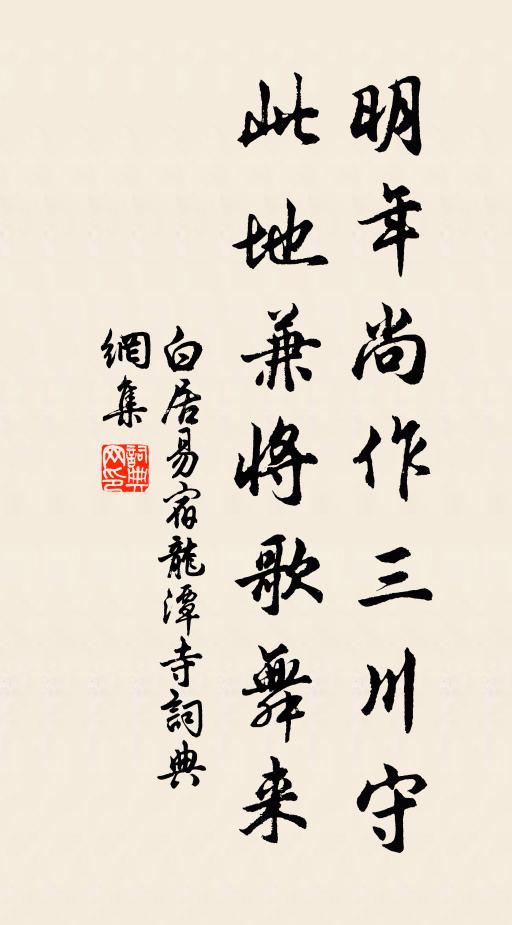 明年尚作三川守
此地兼將歌舞来
白居易宿龍潭寺詞典
網集
詞典网印